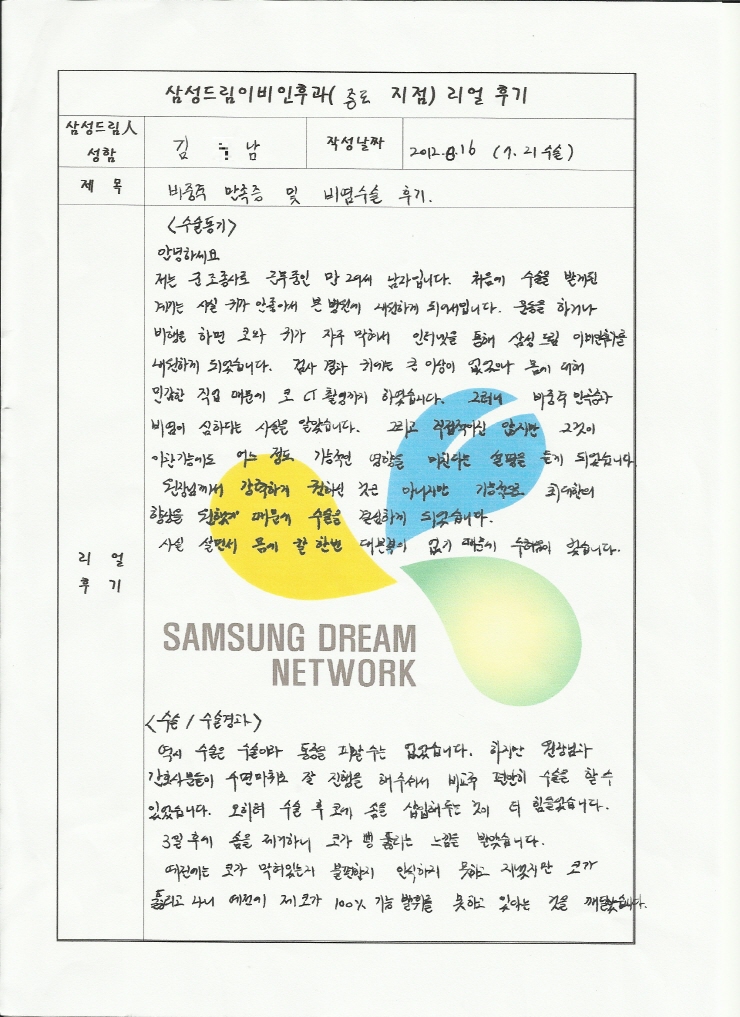 삼성드림이비인후과( 종로 지점) 리얼 후기
삼성드림人
성함
김 남
작성날짜
2012.8.16 (7.21 수술)
제 목
비중격 만곡증 및 비염수술 후기.
<수술동기>
안녕하세요
저는 군 조종사로 근무중인 만 29세 남자입니다. 처음에 수술을 받게된
계기는 사실 귀가 안좋아서 본 병원에 내원하게 되어서입니다. 운동을 하거나
비행을 하면 코와 귀가 자주 막혀서 인터넷을 통해 삼성 드림 이비인후과를
내원하게 되었습니다. 검사 결과 귀에는 큰 이상이 없었으나 몸에 대해
민감한 직업 때문에 코 CT 촬영까지 하였습니다. 그러더니 비중격 만곡증과
비염이 심하다는 사실을 알았습니다. 그리고 직접적이진 않지만 그것이
이관기능에도 어느 정도 기능적인 영향을 미친다는 설명을 듣게 되었습니다.
원장님께서 강력하게 권하신 것은 아니지만 기능적으로 최대한의
향상을 원했기 때문에 수술을 결심하게 되었습니다.
사실 살면서 몸에 칼 한번 대본적이 없기 때문에 두려움이 컸습니다.
리 얼
후 기
SAMSUNG DREAM
NETWORK
<수술 / 수술경과>
역시 수술은 수술이라 통증을 피할 수는 없었습니다. 하지만 원장님과
간호사분들이 수면마취로 잘 진행을 해 주셔서 비교적 편안히 수술을 할 수
있었습니다. 오히려 수술 후 코에 솜을 삽입해두는 것이 더 힘들었습니다.
3일 후에 솜을 제거하니 코가 뻥 뚫리는 느낌을 받았습니다.
예전에는 코가 막혀있는지 불편한지 인식하지 못하고 지냈지만 코가
뚫리고 나니 예전에 제 코가 100% 기능 발휘를 못하고 있다는 것을 깨달았습니다.